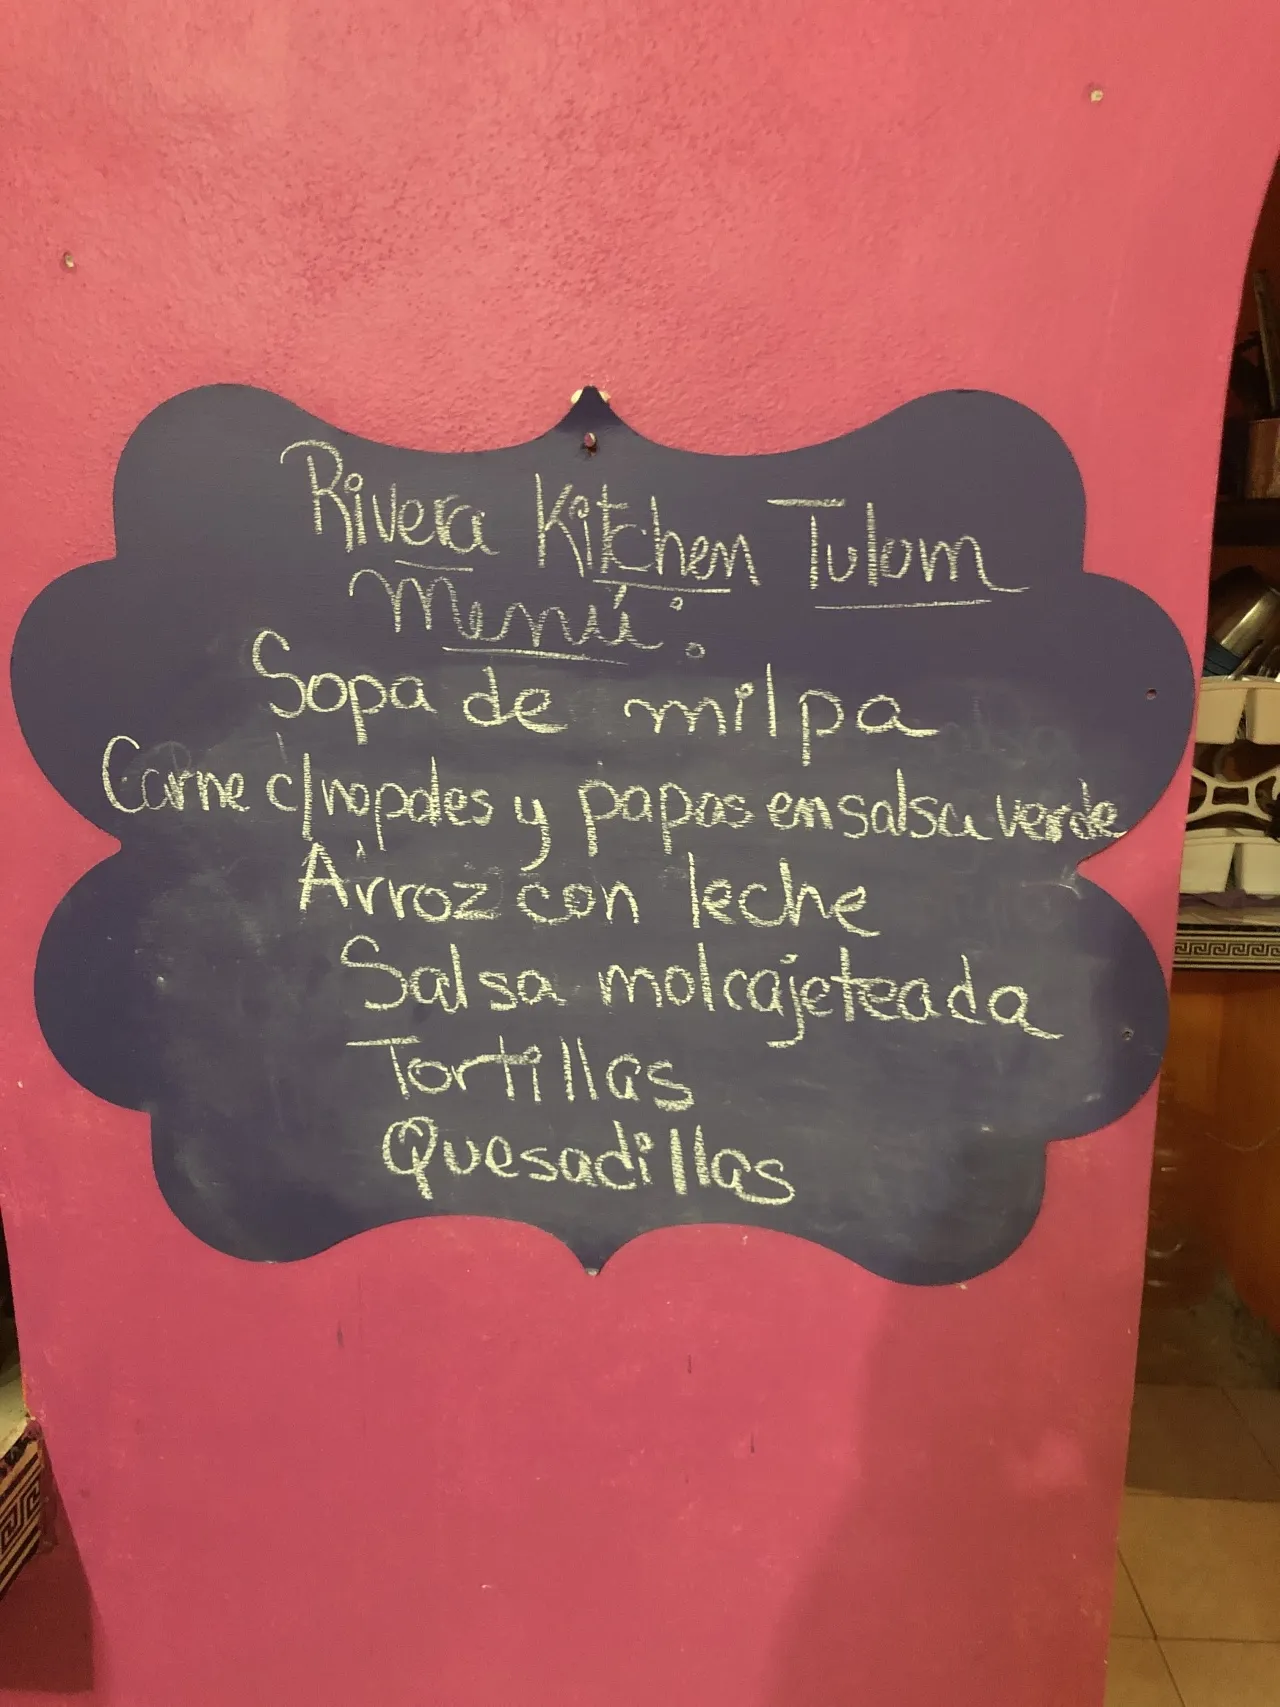 Rivera Kitchen Tulum
Menú:
Sopa de milpa
Carne c/nopales y papas en salsa verde
Arroz con leche
Salsa molcajeteada
Tortillas
Quesadillas